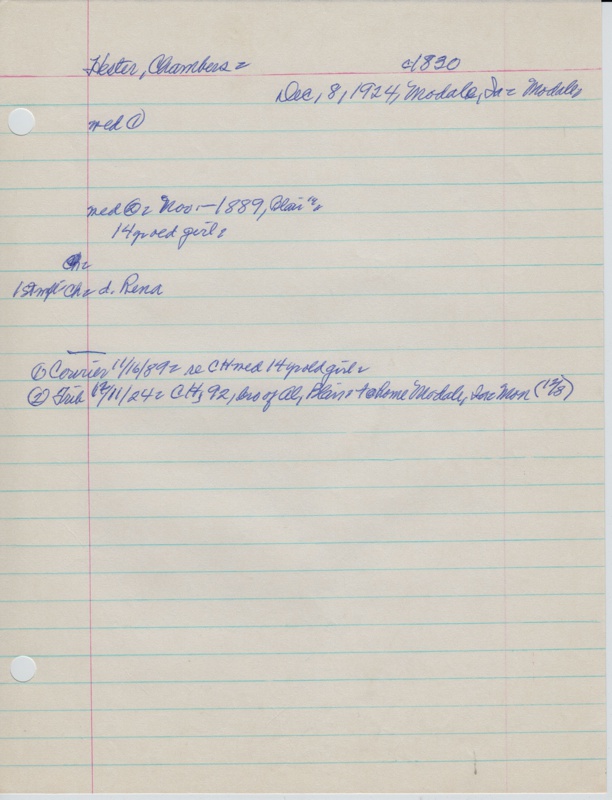 Hester, Chambers =
c1830
Dec, 8, 1924, Modale, Ia = Modale,
med ①
med ② = Nov. — 1889, Blair
14 yr old girl =
Ch =
1st wife Ch = d. Rena
① Courier 11/16/89 = re CH med 14 yr old girl =
② Trib 12/11/24 = CH, 92, bro of Al, Blair + @ home Modale, Ia = Mon (12/8)